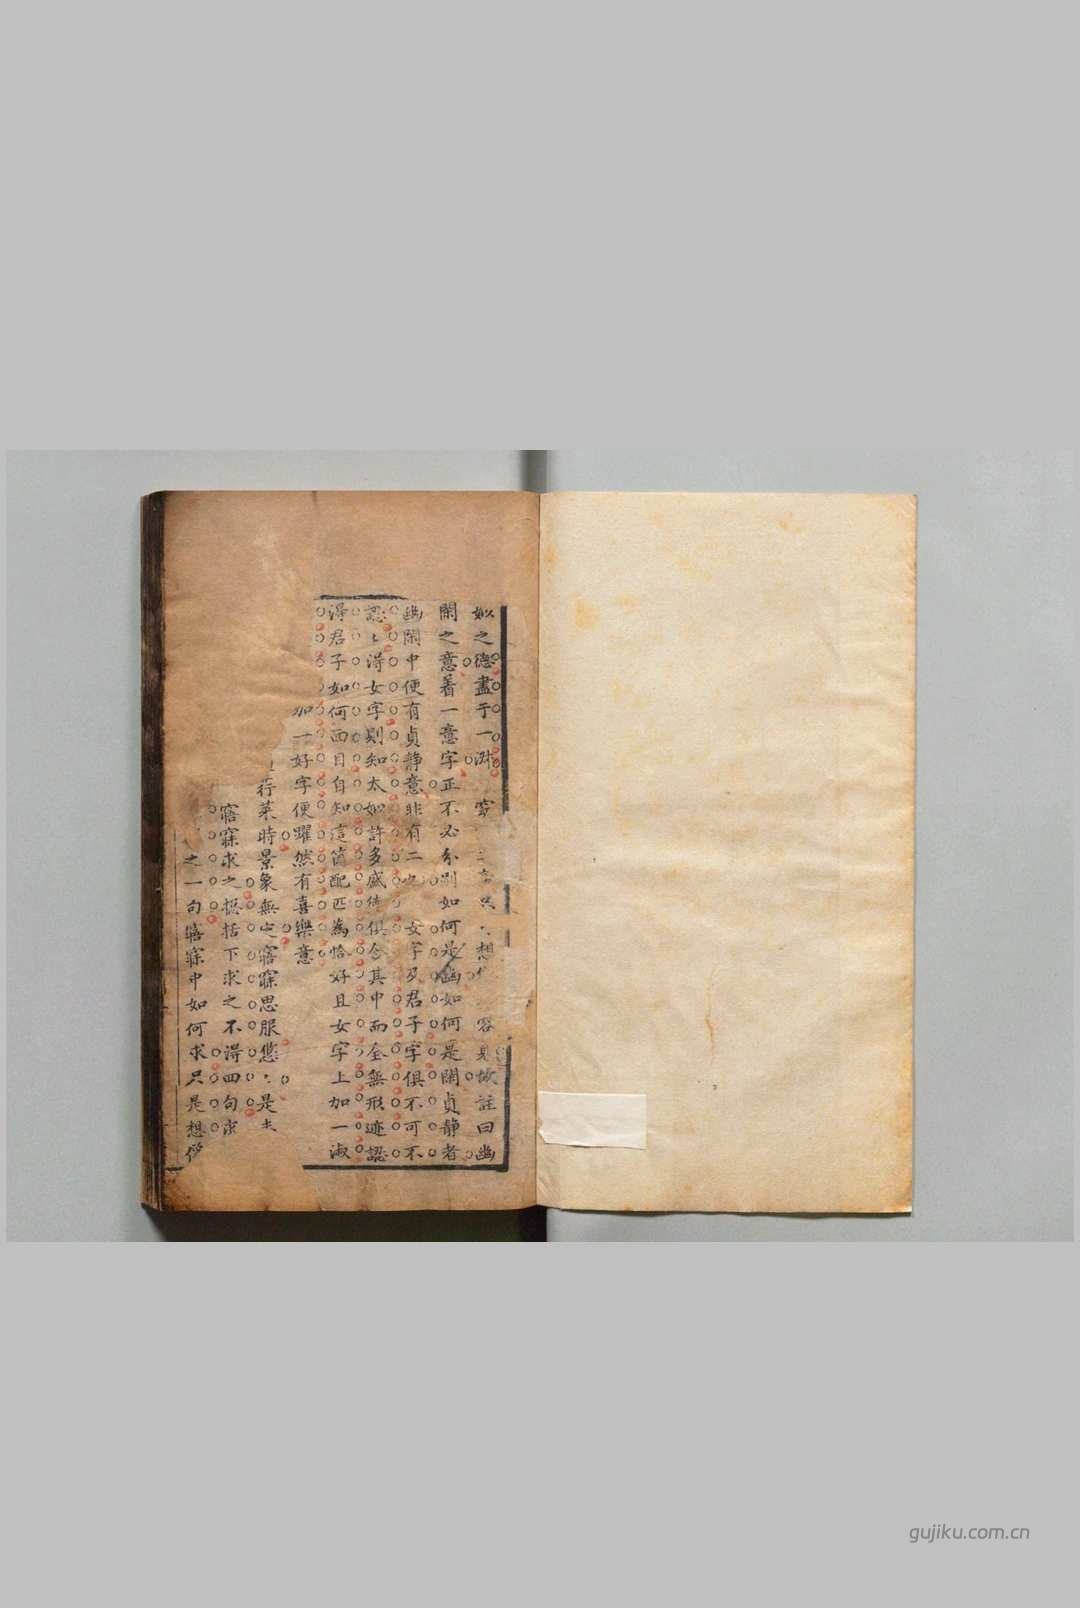 姒之德盡于一淑 窈 言 想 容 故註曰幽
閑之意着一意字正不必分别如何是幽如何是閑貞静者
幽閑中便有貞静意非有二也 女字及君子字俱不可不
認〻得女字則知太姒許多盛德俱含其中而全無形迹認
得君子如何面目自知這箇配匹為恰好且女字上加一淑
加一好字便躍然有喜樂意
荇菜時景象無之寤寐思服悠〻是
寤寐求之極括下求之不得四句求
之一句寤寐中如何求只是想像
gujiku.com.cn